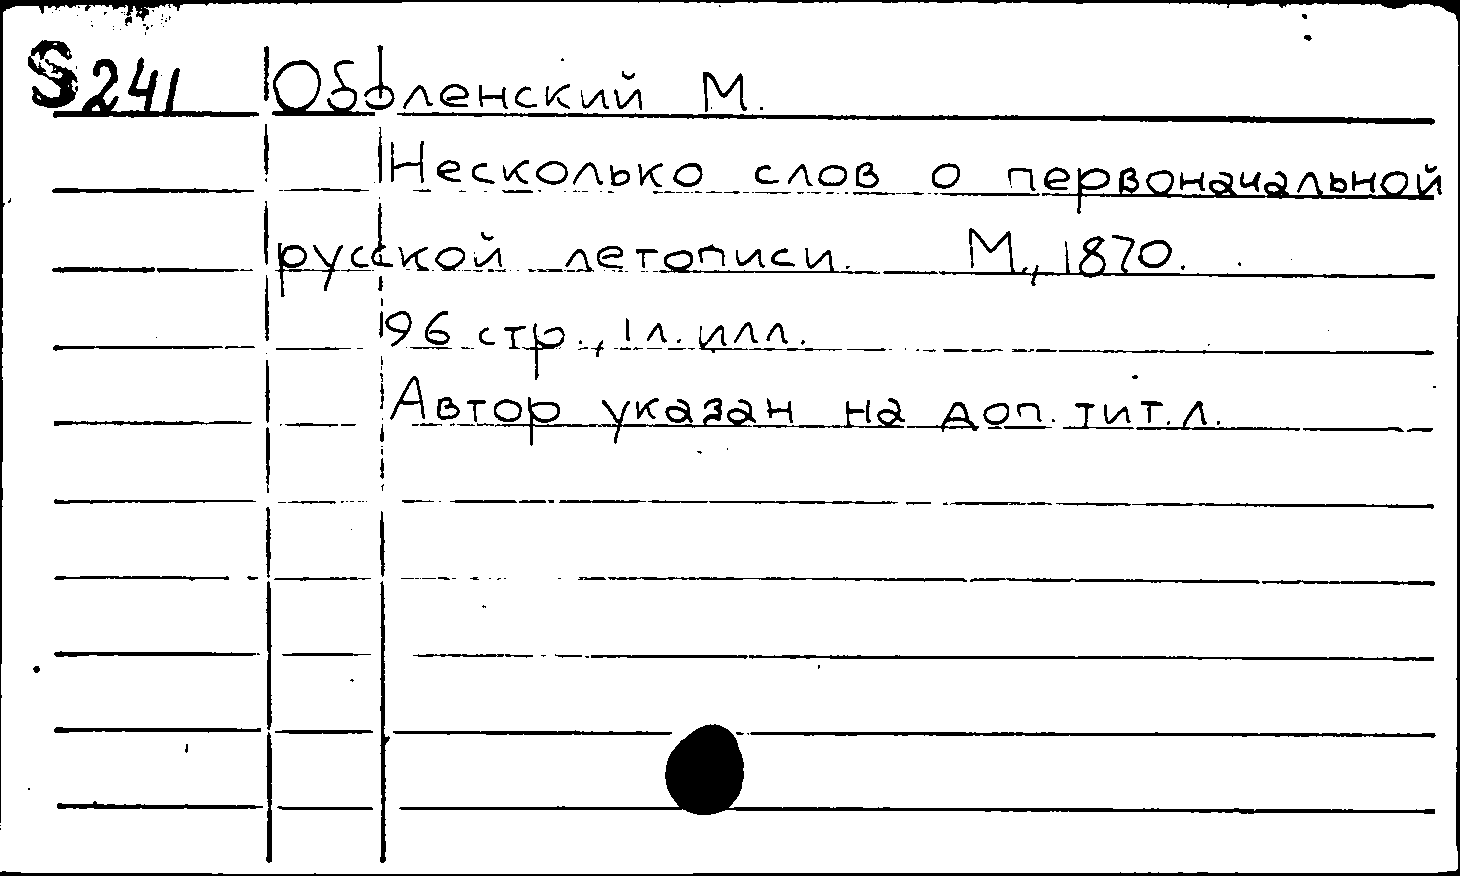 S241 Оболенский М.
Несколько слов о первоначальной
русской летописи. М., 1870.
96 стр., 1 л. илл.
Автор указан на доп. тит. л.